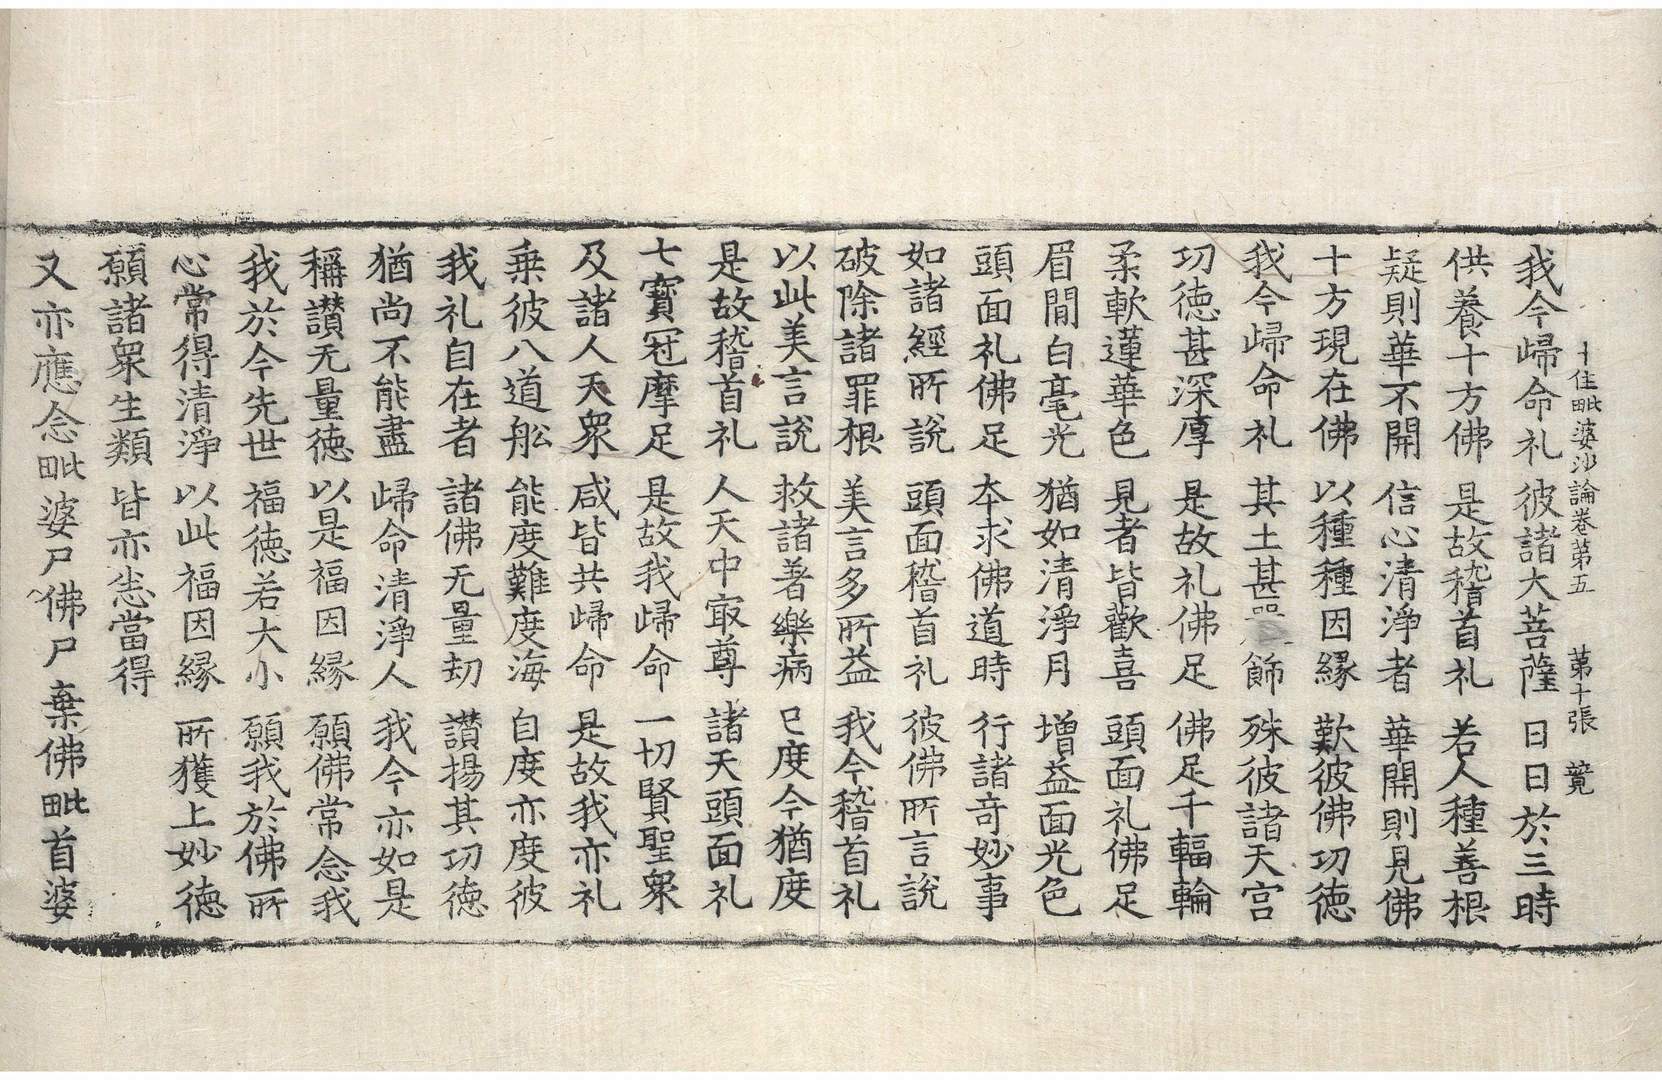 十住毗婆沙論卷第五 第十張 竟
我今歸命礼 彼諸大菩薩 日日於三時
供養十方佛 是故稽首礼 若人種善根
疑則華不開 信心清淨者 華開則見佛
十方現在佛 以種種因緣 歎彼佛功德
我今歸命礼 其土甚嚴飾 殊彼諸天宮
功德甚深厚 是故礼佛足 佛足千輻輪
柔軟蓮華色 見者皆歡喜 頭面礼佛足
眉間白毫光 猶如清淨月 增益面光色
頭面礼佛足 本求佛道時 行諸奇妙事
如諸經所說 頭面稽首礼 彼佛所言說
破除諸罪根 美言多所益 我今稽首礼
以此美言說 救諸著樂病 已度今猶度
是故稽首礼 人天中㝡尊 諸天頭面礼
七寶冠摩足 是故我歸命 一切賢聖衆
及諸人天衆 咸皆共歸命 是故我亦礼
乗彼八道舩 能度難度海 自度亦度彼
我礼自在者 諸佛无量劫 讃揚其功德
猶尚不能盡 歸命清淨人 我今亦如是
稱讃无量德 以是福因緣 願佛常念我
我於今先世 福德若大小 願我於佛所
心常得清淨 以此福因緣 所獲上妙德
願諸衆生類 皆亦悉當得
又亦應念毗婆尸佛尸棄佛毗首婆